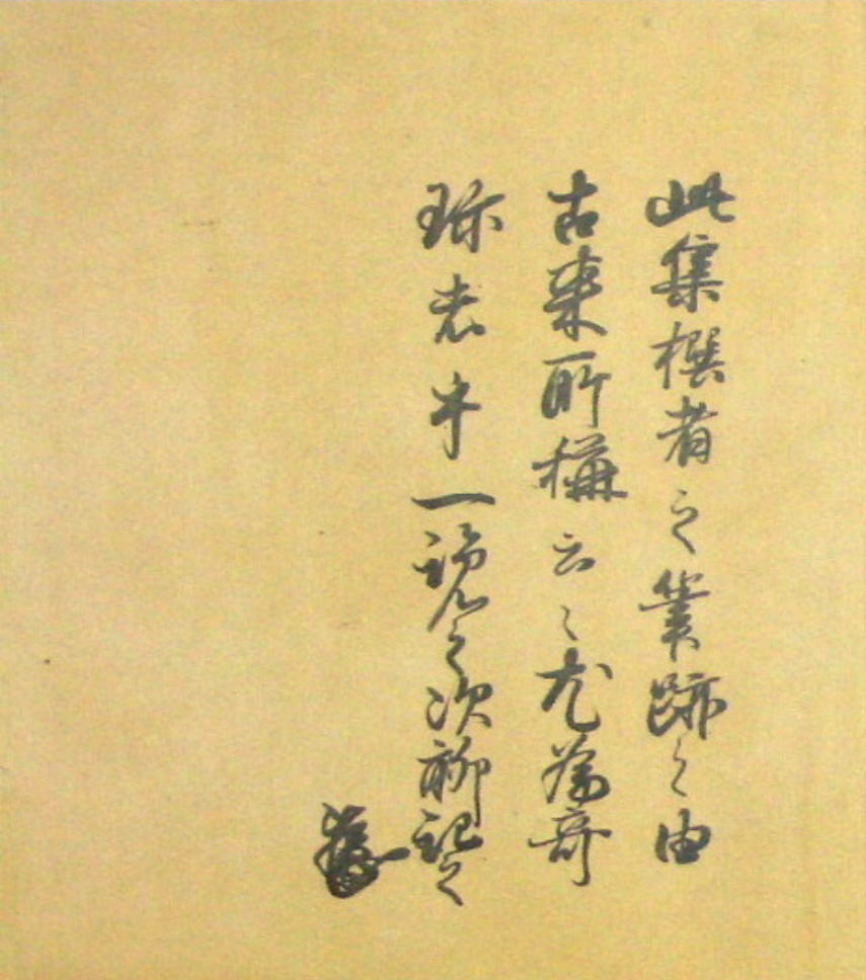 此集撰者之筆跡之由
古来所称云々尤為奇
珍者乎一覧之次聊記之